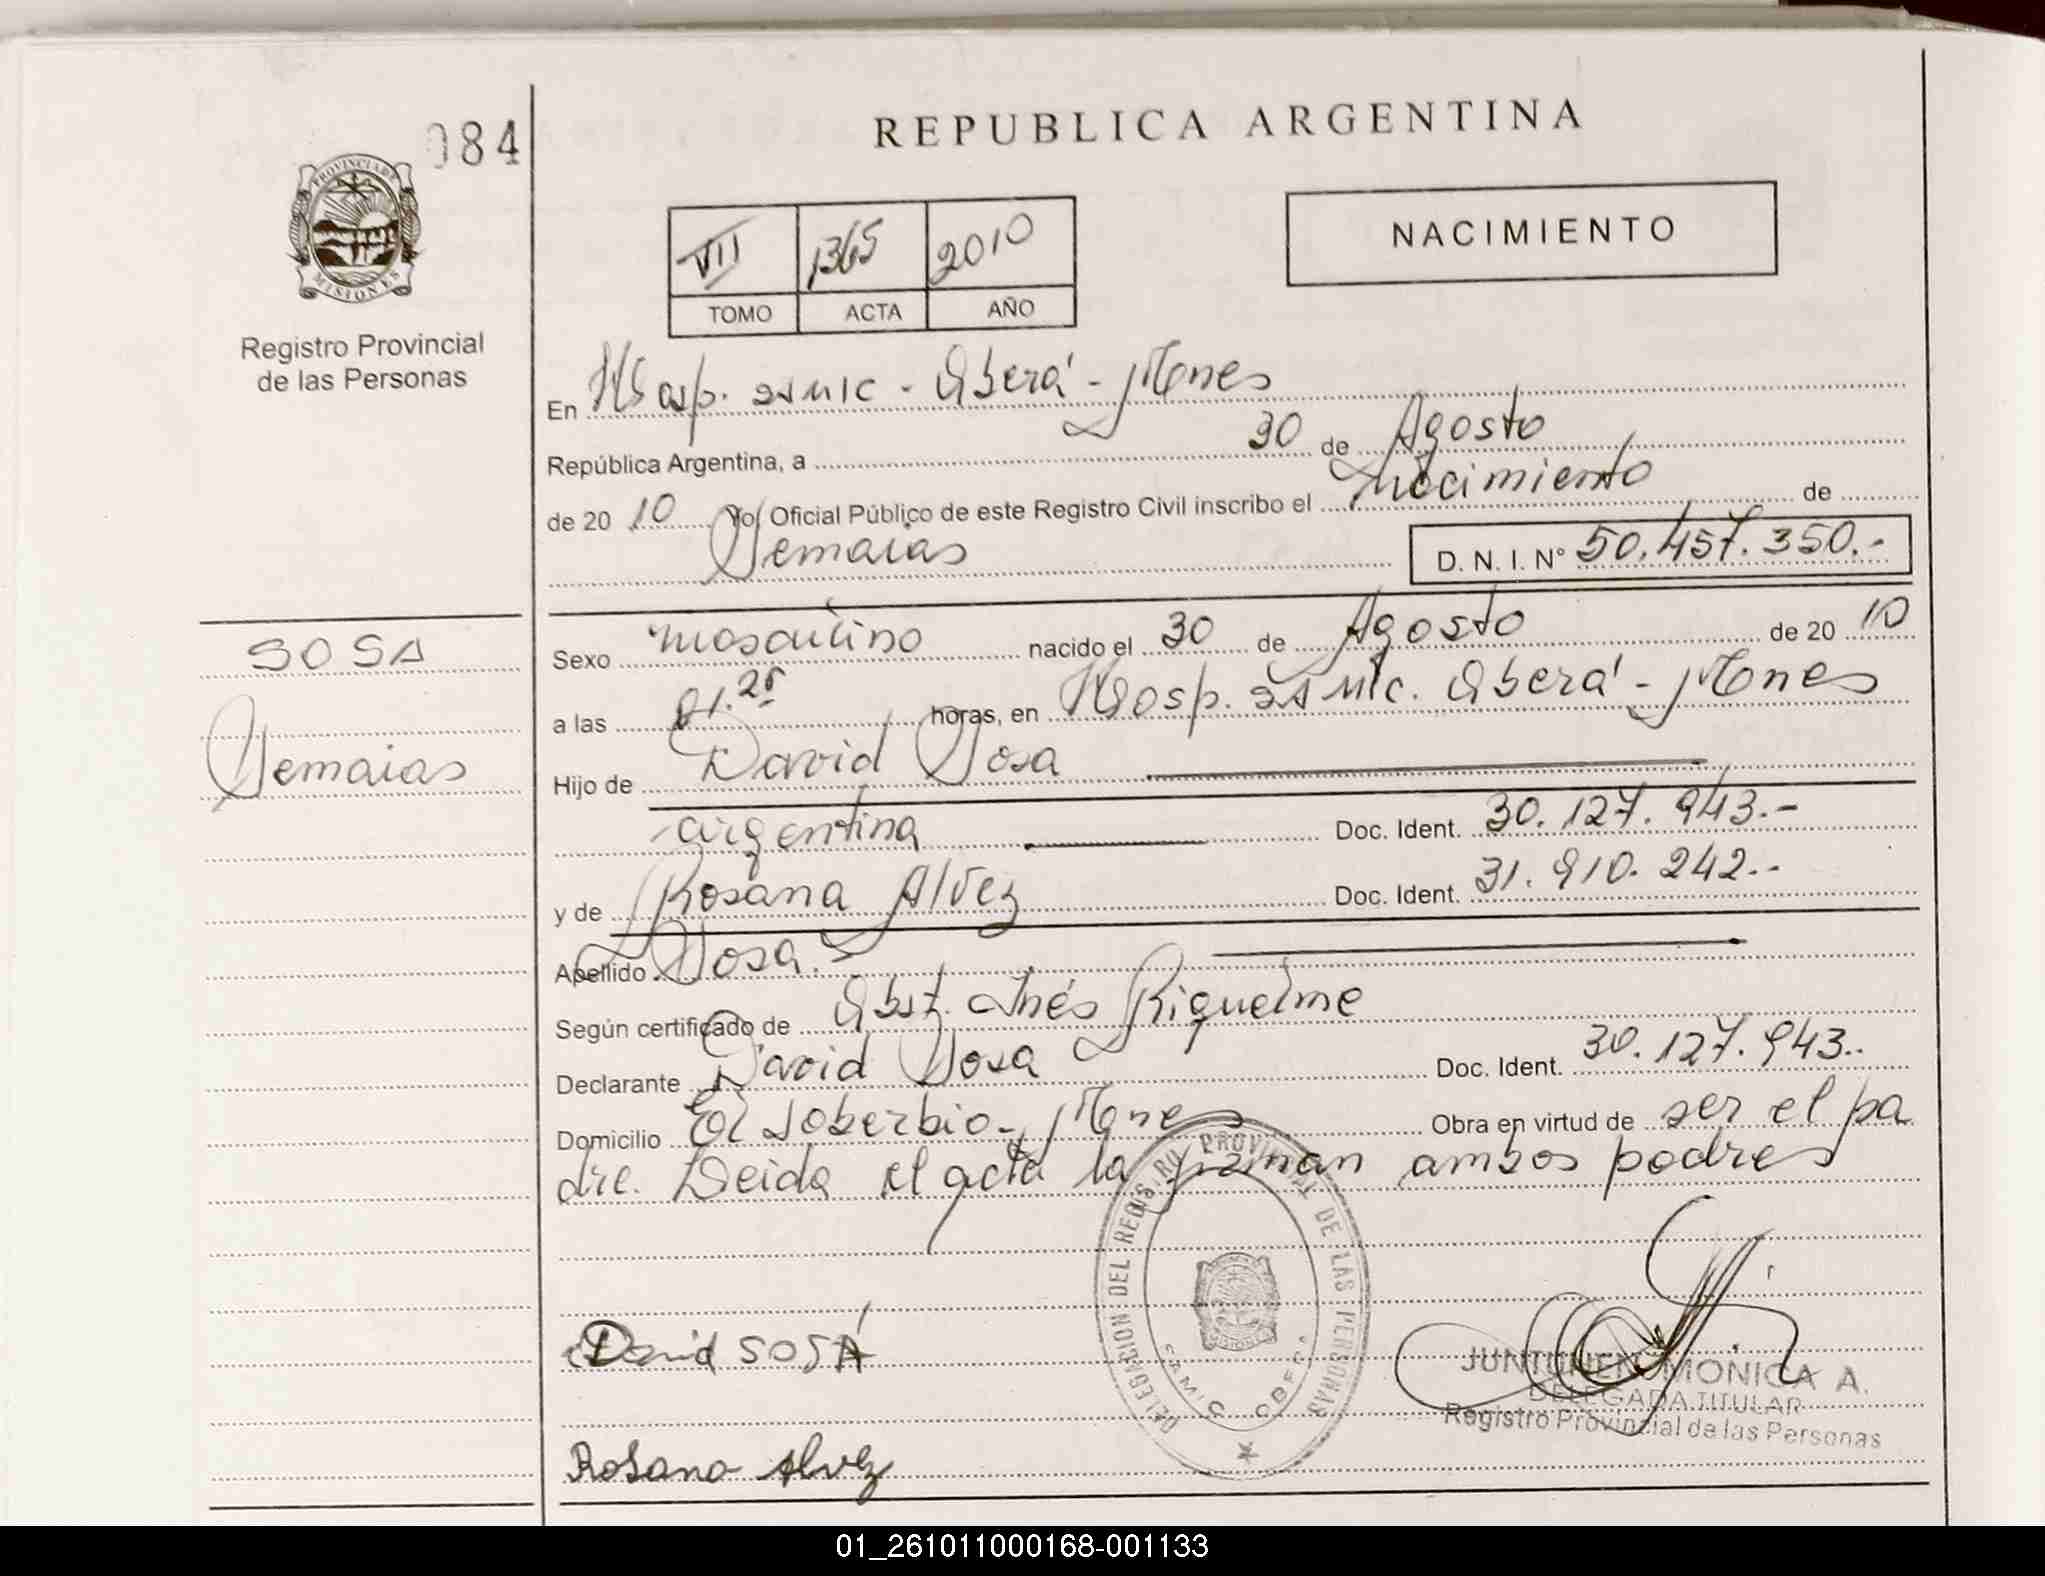 084
REPUBLICA ARGENTINA
PROVINCIA DE
MISIONES
Registro Provincial
de las Personas
VII 1365 2010
TOMO ACTA AÑO
NACIMIENTO
En Hosp. Samic - Oberá - Mones
República Argentina, a 30 de Agosto
de 2010 Yo, Oficial Público de este Registro Civil inscribo el Nacimiento de
Semaias D. N. I. N° 50.457.350.-
SOSA
Semaias
Sexo masculino nacido el 30 de Agosto de 2010
a las 01.25 horas, en Hosp. Samic. Oberá - Mones
Hijo de David Sosa
argentina Doc. Ident. 30.127.943.-
y de Rosana Alvez Doc. Ident. 31.910.242.-
Apellido Sosa.
Según certificado de Obst. Inés Riquelme
Declarante David Sosa Doc. Ident. 30.127.943.-
Domicilio El Soberbio - Mones Obra en virtud de ser el pa
dre. Leida el acta la firman ambos padres
DELEGACION DEL REGISTRO PROVINCIAL DE LAS PERSONAS
David SOSA
JUNTUNEN MONICA A.
DELEGADA TITULAR
Registro Provincial de las Personas
Rosana Alvez
01_261011000168-001133